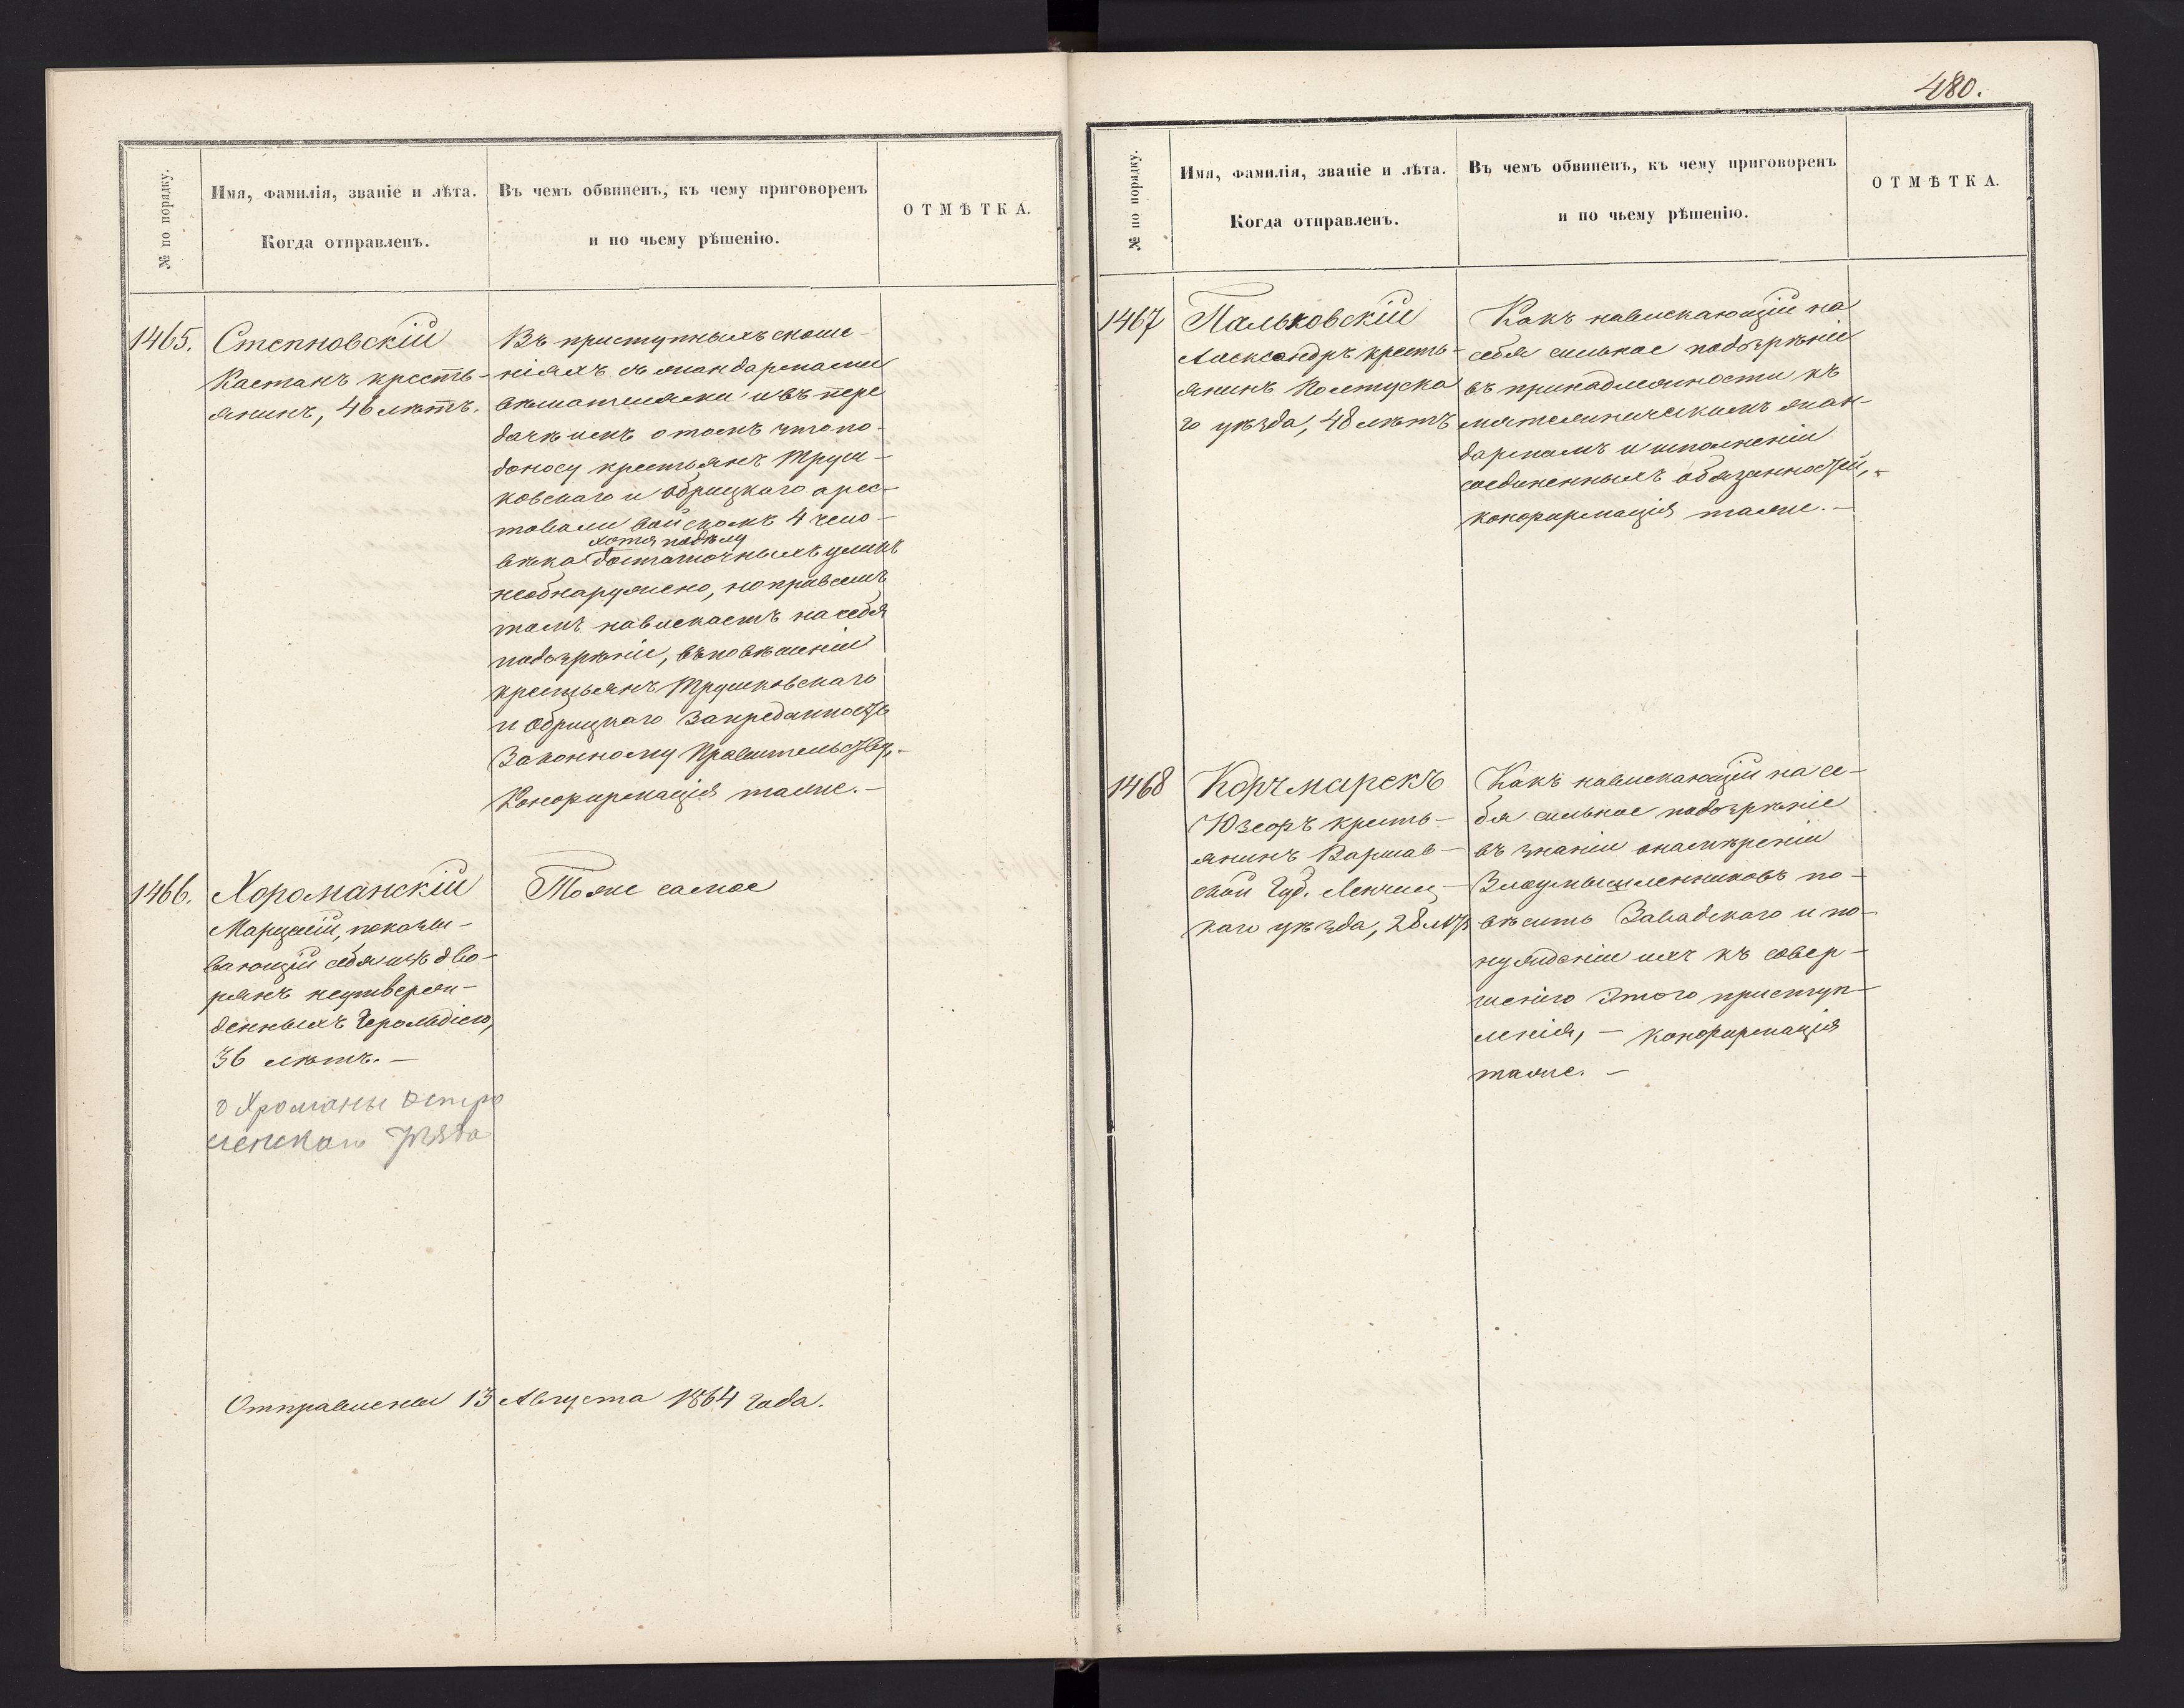 480.
№ по порядку.
Имя, фамилія, званіе и лѣта.
Когда отправленъ.
Въ чемъ обвиненъ, къ чему приговоренъ
и по чьему рѣшенію.
ОТМѢТКА.
1465.
Степновскій
Каетанъ кресть-
янинъ, 46 лѣтъ.
Въ приступныхъ сноше-
ніяхъ съ жандармами
вѣшателями и въ пере
дачѣ имъ о томъ что по
доносу крестьянъ Труш-
ковскаго и Обрицкаго арес-
товали войскомъ 4 чело-
хотя по дѣлу
вѣка достаточныхъ уликъ
необнаружено, но при всемъ
томъ навлекаетъ на себя
подозрѣніе, въ повѣшеніи
крестьянъ Трушковскаго
и Обрицкаго за преданность
Законному Правительству,-
Конфирмація таже.-
1466.
Хороманскій
Марцелій, показы-
вающій себя изъ дво-
рянъ неутверж-
денныхъ Герольдіею,
36 лѣтъ.-
Тоже самое
д Хроманы Остро
ленскаго Уѣзда
Отправлены 13 Августа 1864 года.
№ по порядку.
Имя, фамилія, званіе и лѣта.
Когда отправленъ.
Въ чемъ обвиненъ, къ чему приговоренъ
и по чьему рѣшенію.
ОТМѢТКА.
1467
Пальковскій
Александръ кресть-
янинъ Полтуска
го уѣзда, 48 лѣтъ
Какъ навлекающій на
себя сильное подозрѣніе
въ принадлежности къ
мятежническимъ жан-
дармамъ и исполненіи
соединенныхъ обязанностей,-
конфирмація таже.-
1468
Корчмарекъ
Юзефъ кресть-
янинъ Варшав-
ской Губ. Ленчиц-
каго уѣзда, 28 лѣтъ
Какъ навлекающій на се-
бя сильное подозрѣніе
въ знаніи о намѣреніи
Злоумышленниковъ по-
вѣсить Завадскаго и по-
нужденіи ихъ къ совер-
шенію этого приступ-
ленія, - конфирмація
таже. -